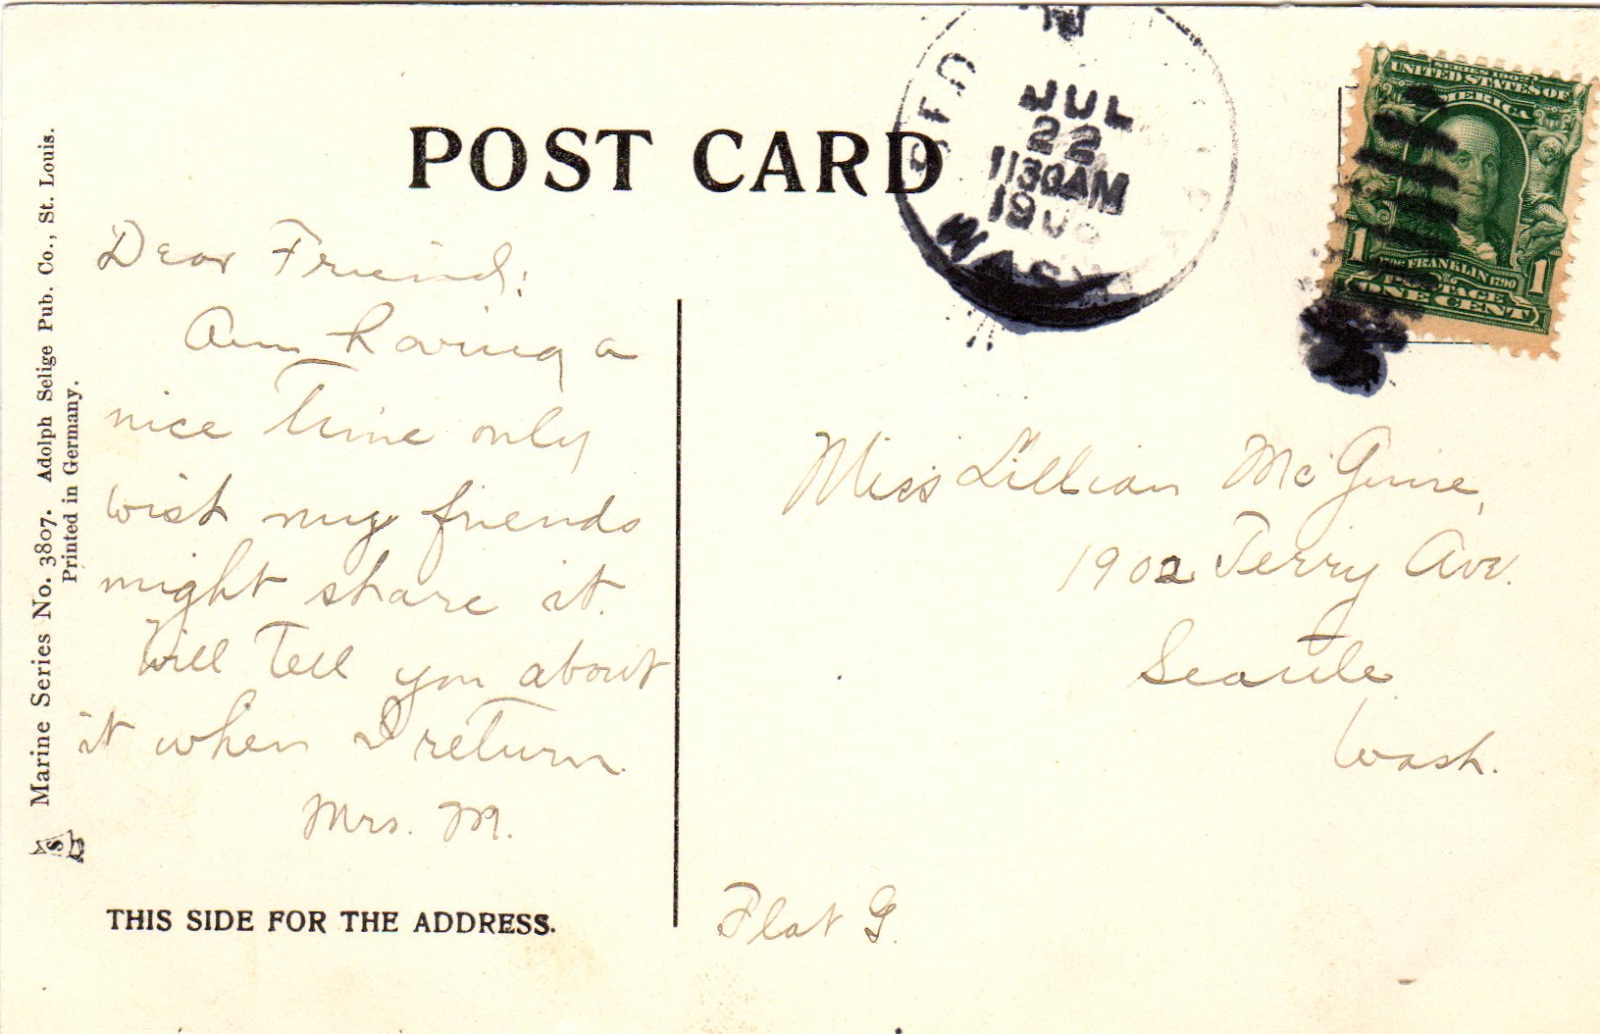 POST CARD
JUL
22
1130AM
WASH
SERIES 1902
UNITED STATES OF
AMERICA
1 FRANKLIN 1790 1
POSTAGE
ONE CENT
Marine Series No. 3807. Adolph Selige Pub. Co., St. Louis.
Printed in Germany.
Dear Friend:
Am having a
nice time only
wish my friends
might share it.
Will tell you about
it when I return.
Mrs. M.
THIS SIDE FOR THE ADDRESS.
Miss Lillian McGuire,
1902 Terry Ave.
Seattle
Wash.
Flat G.